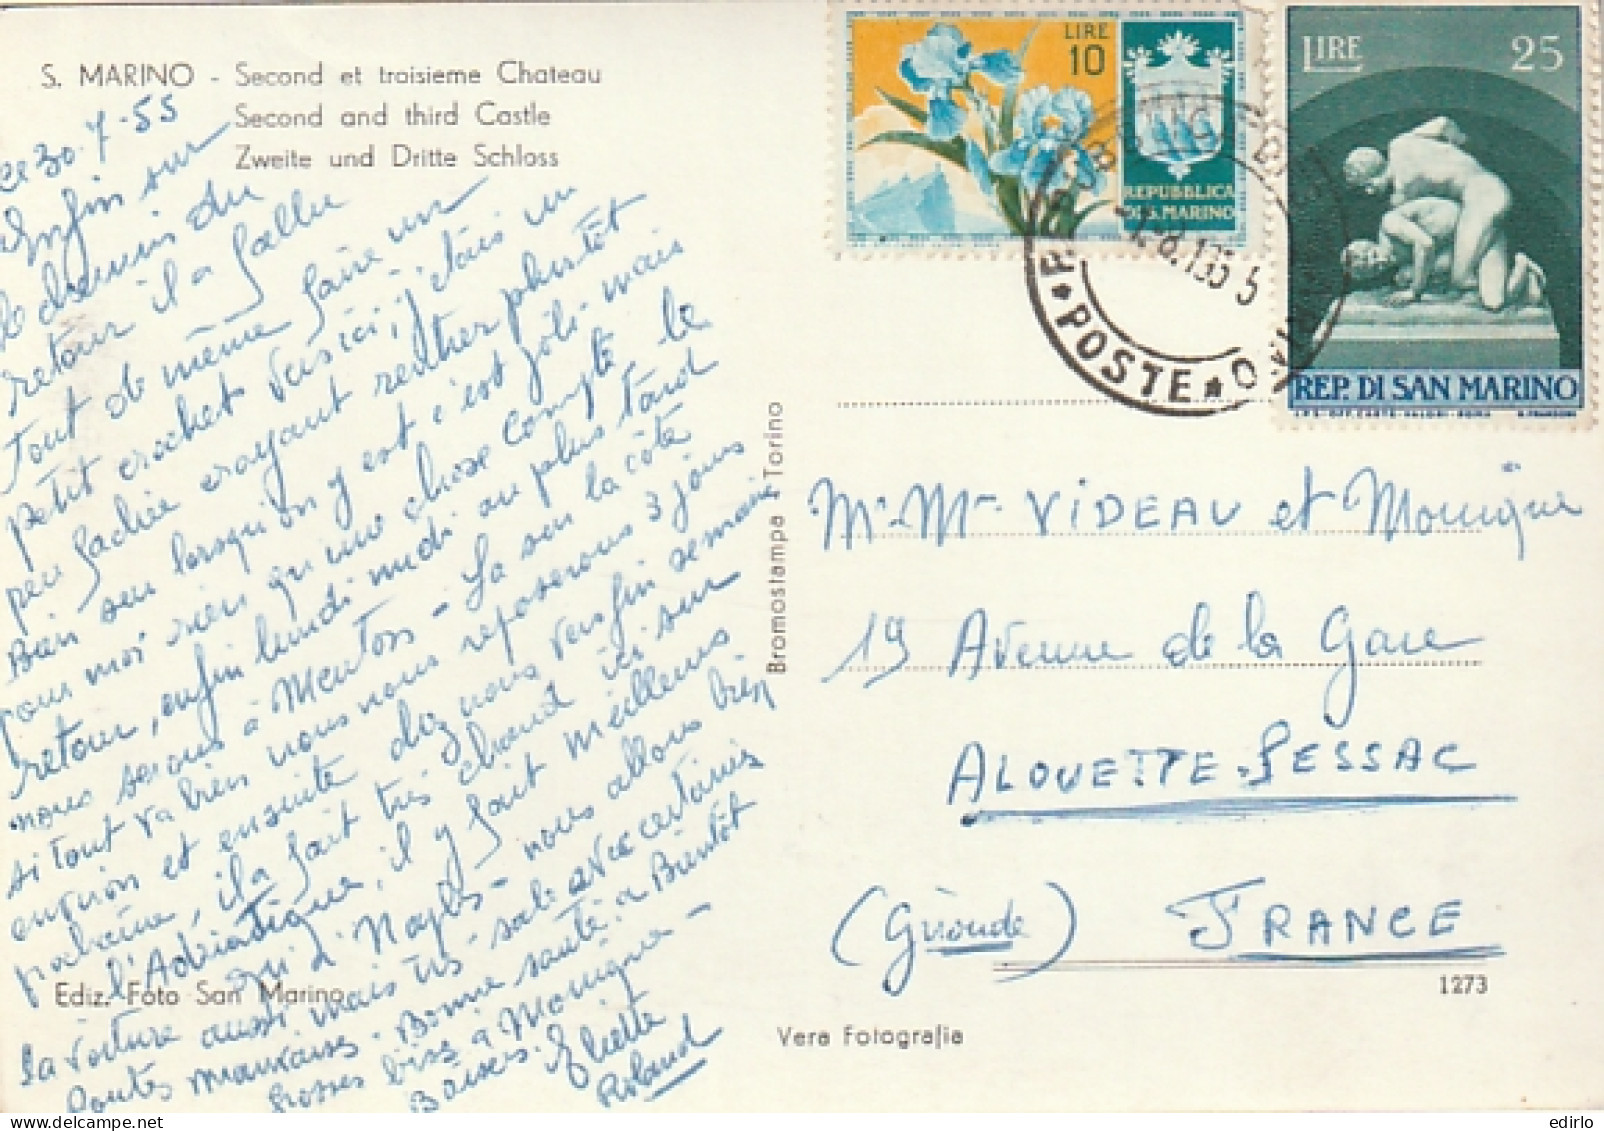 S. MARINO - Second et troisieme Chateau
Second and third Castle
Zweite und Dritte Schloss
ce 30.7-55
Enfin sur
le chemin du
retour il a fallu
tout de même faire un
petit crochet vers ici, j'étais un
peu fachée croyant rentrer plustôt
Bien sur lorsqu'on y est c'est joli. mais
pour moi rien qu'une chose compte le
retour, enfin lundi midi au plus tard
nous serons à Menton - La sur la côte
si tout va bien nous nous reposerons 3 jours
environ et ensuite chez nous vers fin semaine
prochaine, il a fait très chaud ici sur
l'Adriatique, il y fait meilleur
qu'à Naples - nous allons bien
la voiture aussi mais très sale avec certaines
routes mauvaises. Bonne santé. a Bientôt
Grosses bises à Monique -
Baisers. Eliette
Roland
Ediz. Foto San Marino
Bromostampa Torino
Vera Fotografia
1273
LIRE
10
REPUBBLICA
DI S. MARINO
LIRE 25
REP. DI SAN MARINO
POSTE
Mr. Mme VIDEAU et Monique
19 Avenue de la Gare
ALOUETTE-PESSAC
(Gironde) FRANCE
edirlo